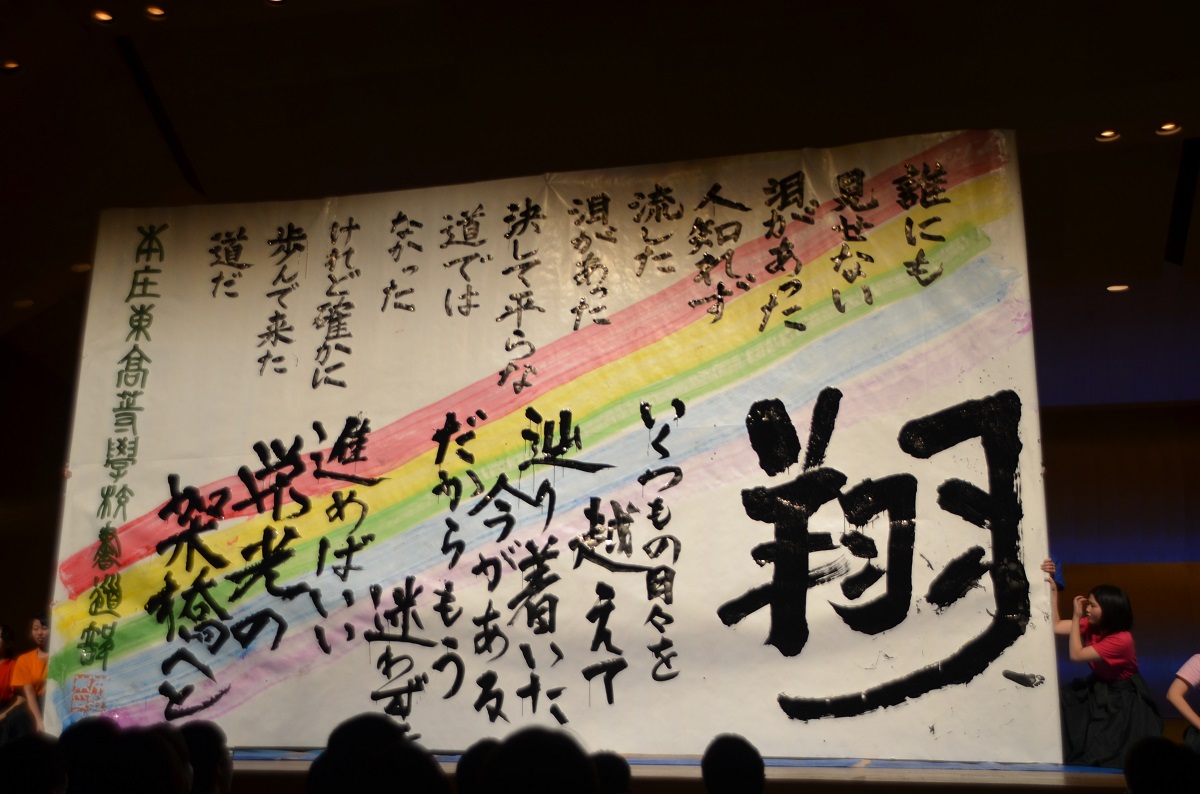 誰にも
見せない
泪があった
人知れず
流した
泪があった
決して平らな
道では
なかった
けれど確かに
歩んで来た
道だ
翔
いくつもの日々を
越えて
辿り着いた
今がある
だからもう
迷わず
進めばいい
栄光の
架橋へと
本庄東高等學校書道部